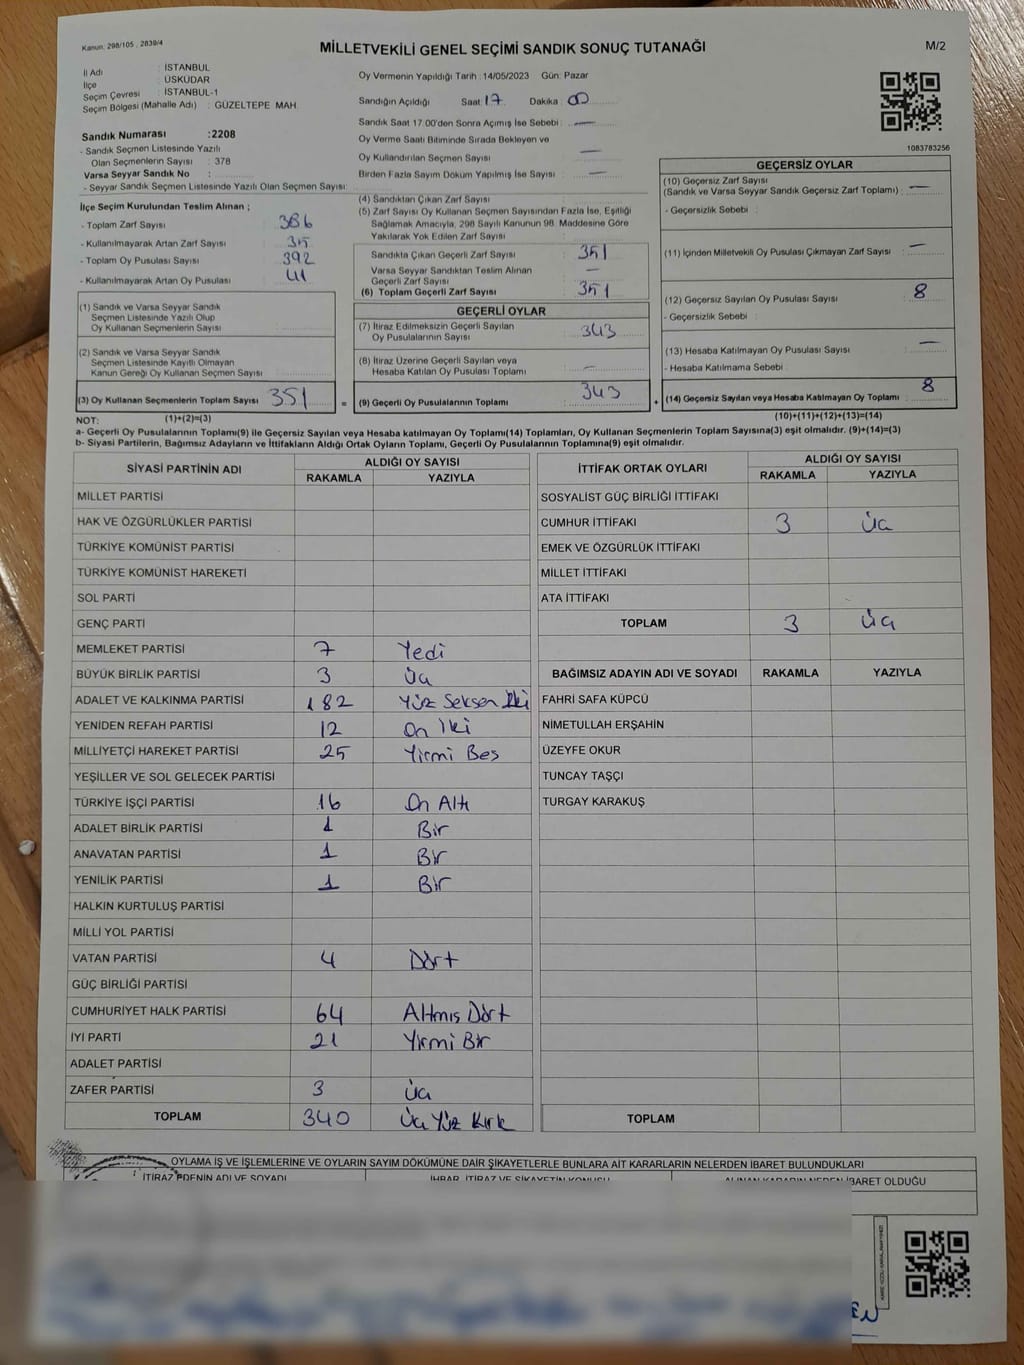 Kanun. 298/105 , 2839/4
MİLLETVEKİLİ GENEL SEÇİMİ SANDIK SONUÇ TUTANAĞI
M/2
İl Adı : İSTANBUL
İlçe : ÜSKÜDAR
Seçim Çevresi : İSTANBUL-1
Seçim Bölgesi (Mahalle Adı) : GÜZELTEPE MAH.
Sandık Numarası :2208
- Sandık Seçmen Listesinde Yazılı
Olan Seçmenlerin Sayısı : 378
Varsa Seyyar Sandık No :
- Seyyar Sandık Seçmen Listesinde Yazılı Olan Seçmen Sayısı:
Oy Vermenin Yapıldığı Tarih :14/05/2023 Gün: Pazar
Sandığın Açıldığı Saat 17 Dakika : 00
Sandık Saat 17.00'den Sonra Açımış İse Sebebi : —
Oy Verme Saati Bitiminde Sırada Bekleyen ve
Oy Kullandırılan Seçmen Sayısı : —
Birden Fazla Sayım Döküm Yapılmış İse Sayısı : —
1083783256
İlçe Seçim Kurulundan Teslim Alınan ;
- Toplam Zarf Sayısı : 386
- Kullanılmayarak Artan Zarf Sayısı : 35
- Toplam Oy Pusulası Sayısı : 392
- Kullanılmayarak Artan Oy Pusulası : 41
(1) Sandık ve Varsa Seyyar Sandık
Seçmen Listesinde Yazılı Olup
Oy Kullanan Seçmenlerin Sayısı :
(2) Sandık ve Varsa Seyyar Sandık
Seçmen Listesinde Kayıtlı Olmayan
Kanun Gereği Oy Kullanan Seçmen Sayısı :
(3) Oy Kullanan Seçmenlerin Toplam Sayısı : 351
(1)+(2)=(3)
(4) Sandıktan Çıkan Zarf Sayısı :
(5) Zarf Sayısı Oy Kullanan Seçmen Sayısından Fazla İse, Eşitliği
Sağlamak Amacıyla, 298 Sayılı Kanunun 98. Maddesine Göre
Yakılarak Yok Edilen Zarf Sayısı :
Sandıkta Çıkan Geçerli Zarf Sayısı : 351
Varsa Seyyar Sandıktan Teslim Alınan
Geçerli Zarf Sayısı : —
(6) Toplam Geçerli Zarf Sayısı : 351
GEÇERLİ OYLAR
(7) İtiraz Edilmeksizin Geçerli Sayılan
Oy Pusulalarının Sayısı : 343
(8) İtiraz Üzerine Geçerli Sayılan veya
Hesaba Katılan Oy Pusulası Toplamı : —
= (9) Geçerli Oy Pusulalarının Toplamı : 343
GEÇERSİZ OYLAR
(10) Geçersiz Zarf Sayısı
(Sandık ve Varsa Seyyar Sandık Geçersiz Zarf Toplamı) : —
- Geçersizlik Sebebi :
(11) İçinden Milletvekili Oy Pusulası Çıkmayan Zarf Sayısı : —
(12) Geçersiz Sayılan Oy Pusulası Sayısı : 8
- Geçersizlik Sebebi :
(13) Hesaba Katılmayan Oy Pusulası Sayısı : —
- Hesaba Katılmama Sebebi :
+ (14) Geçersiz Sayılan veya Hesaba Katılmayan Oy Toplamı : 8
(10)+(11)+(12)+(13)=(14)
NOT:
a- Geçerli Oy Pusulalarının Toplamı(9) ile Geçersiz Sayılan veya Hesaba katılmayan Oy Toplam(14) Toplamları, Oy Kullanan Seçmenlerin Toplam Sayısına(3) eşit olmalıdır. (9)+(14)=(3)
b- Siyasi Partilerin, Bağımsız Adayların ve İttifakların Aldığı Ortak Oyların Toplamı, Geçerli Oy Pusulalarının Toplamına(9) eşit olmalıdır.
SİYASİ PARTİNİN ADI ALDIĞI OY SAYISI
RAKAMLA YAZIYLA
MİLLET PARTİSİ
HAK VE ÖZGÜRLÜKLER PARTİSİ
TÜRKİYE KOMÜNİST PARTİSİ
TÜRKİYE KOMÜNİST HAREKETİ
SOL PARTİ
GENÇ PARTİ
MEMLEKET PARTİSİ 7 Yedi
BÜYÜK BİRLİK PARTİSİ 3 Üç
ADALET VE KALKINMA PARTİSİ 182 Yüz Seksen İki
YENİDEN REFAH PARTİSİ 12 On İki
MİLLİYETÇİ HAREKET PARTİSİ 25 Yirmi Beş
YEŞİLLER VE SOL GELECEK PARTİSİ
TÜRKİYE İŞÇİ PARTİSİ 16 On Altı
ADALET BİRLİK PARTİSİ 1 Bir
ANAVATAN PARTİSİ 1 Bir
YENİLİK PARTİSİ 1 Bir
HALKIN KURTULUŞ PARTİSİ
MİLLİ YOL PARTİSİ
VATAN PARTİSİ 4 Dört
GÜÇ BİRLİĞİ PARTİSİ
CUMHURİYET HALK PARTİSİ 64 Altmış Dört
İYİ PARTİ 21 Yirmi Bir
ADALET PARTİSİ
ZAFER PARTİSİ 3 Üç
TOPLAM 340 Üç Yüz Kırk
İTTİFAK ORTAK OYLARI ALDIĞI OY SAYISI
RAKAMLA YAZIYLA
SOSYALİST GÜÇ BİRLİĞİ İTTİFAKI
CUMHUR İTTİFAKI 3 Üç
EMEK VE ÖZGÜRLÜK İTTİFAKI
MİLLET İTTİFAKI
ATA İTTİFAKI
TOPLAM 3 Üç
BAĞIMSIZ ADAYIN ADI VE SOYADI RAKAMLA YAZIYLA
FAHRİ SAFA KÜPCÜ
NİMETULLAH ERŞAHİN
ÜZEYFE OKUR
TUNCAY TAŞÇI
TURGAY KARAKUŞ
TOPLAM
OYLAMA İŞ VE İŞLEMLERİNE VE OYLARIN SAYIM DÖKÜMÜNE DAİR ŞİKAYETLERLE BUNLARA AİT KARARLARIN NELERDEN İBARET BULUNDUKLARI
İTİRAZ EDENİN ADI VE SOYADI İHBAR, İTİRAZ VE ŞİKAYETİN KONUSU ALINAN KARARIN NEDEN İBARET OLDUĞU